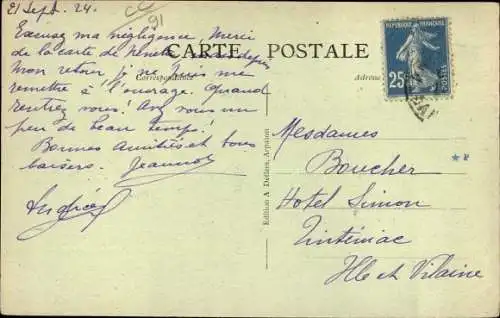 21 Sept. 24.
91
Excusez ma négligence. Merci
de la carte de
CARTE POSTALE
Correspondance
Adresse
mon retour, je ne puis me
remettre à l'ouvrage. Quand
rentrez vous! Avez vous un
peu de beau temps!
Bonnes Amitiés et bons
baisers. Jeannot
REPUBLIQUE FRANÇAISE
25c
POSTES
Mesdames
Boucher
Hotel Simon
Tinténiac
Ille et Vilaine
Edition A Defiers, Arpajon